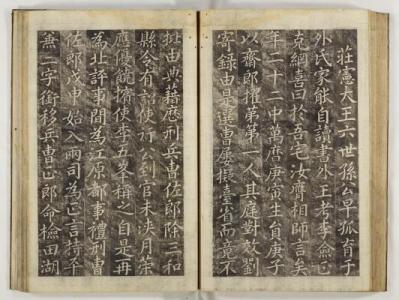 莊憲大王六世孫公早孤育于
外氏家能自讀書外王考李僉正
克綱喜曰於吾宅汝膺相師言矣
年二十二中萬曆庚寅生員庚子
以齋郎擢第第一人其庭對效劉
寄錄由是選曹屢擬臺省而竟不
拙由典藉歷刑兵曹佐郎除三和
縣令有詔使行公到官未浹月策
應優饒擯使李五峯稱之自是再
為北評事間為江原都事禮刑曹
佐郎戊申始入兩司為正言持平
兼二字銜移兵曹正郎命檢田湖